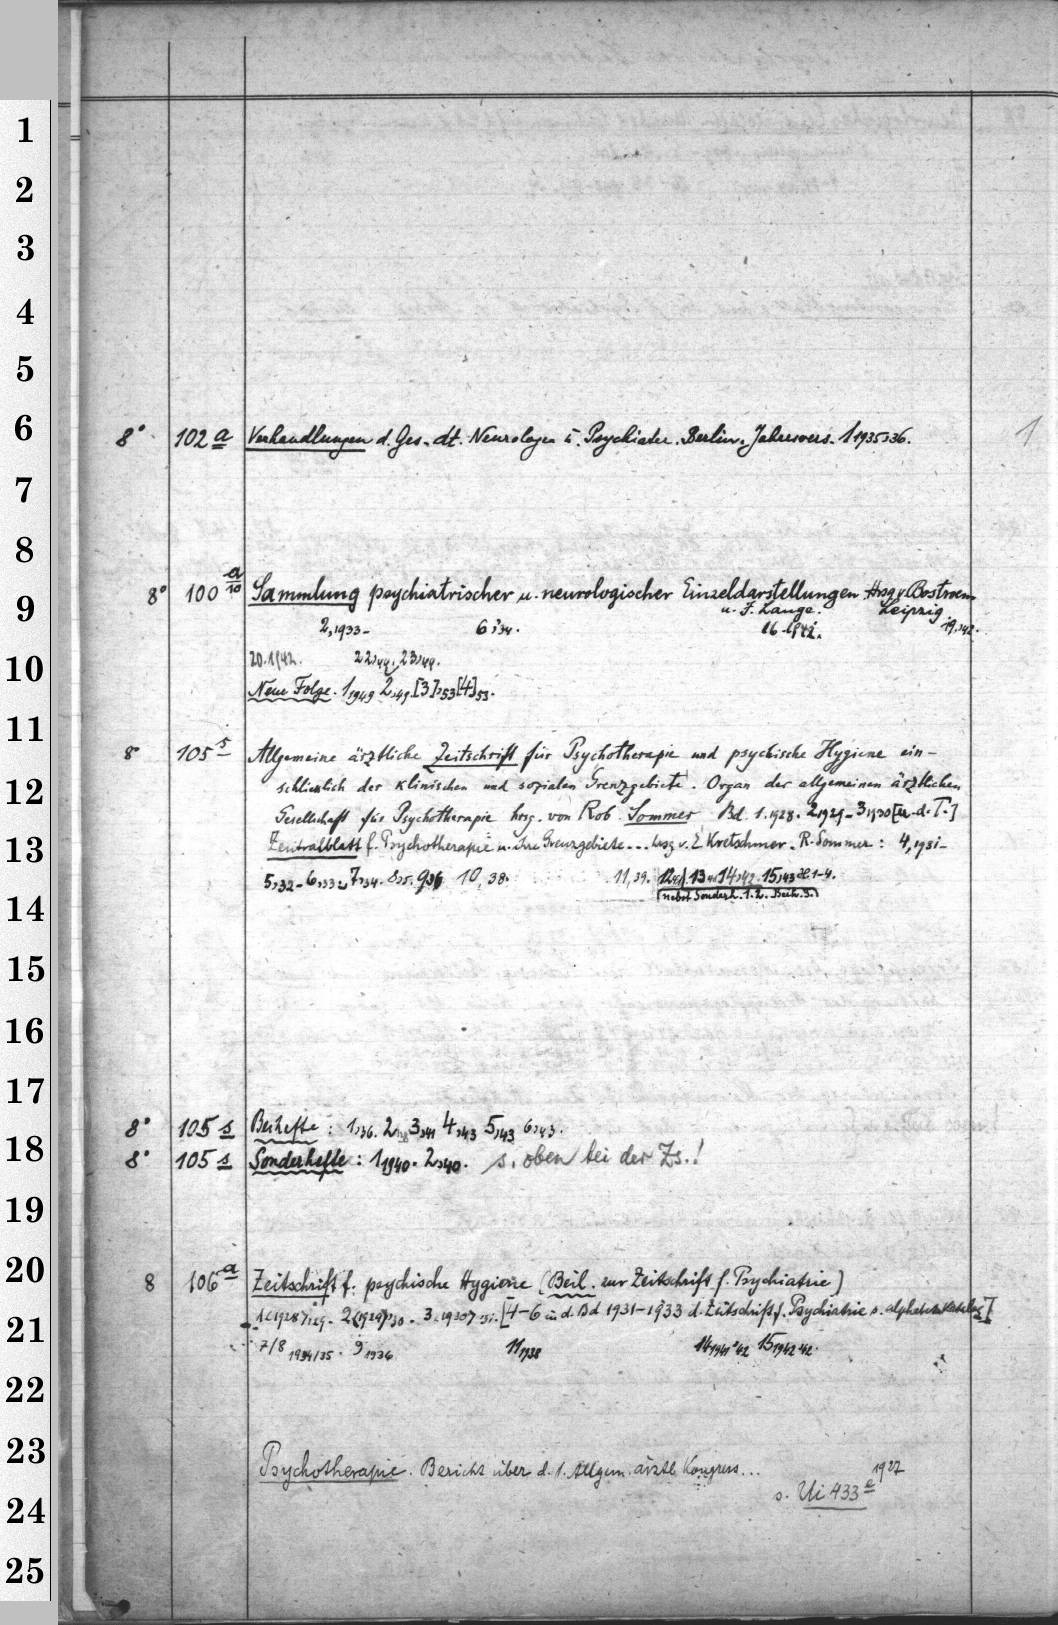 1
2
3
4
5
6
8° 102 a Verhandlungen d. Ges. dt. Neurologen u. Psychiater. Berlin. Jahresvers. 1 1935,36. 1
7
8
9
8° 100 a/10 Sammlung psychiatrischer u. neurologischer Einzeldarstellungen Hrsg v. Bostroem
u. J. Lange. Leipzig
2,1933- 6,34. 16.1942. 19,42.
10
20.1942. 22,44, 23,44.
Neue Folge. 1,1949 2,49.[3],53[4],53.
11
8° 105 s Allgemeine ärztliche Zeitschrift für Psychotherapie und psychische Hygiene ein-
12
schliesslich der klinischen und sozialen Grenzgebiete. Organ der allgemeinen ärztlichen
Gesellschaft für Psychotherapie hrsg. von Rob. Sommer Bd. 1.1928. 2,1929-3,1930[u.d.T.]
13
Zentralblatt f. Psychotherapie u. ihre Grenzgebiete... hrsg v. E. Kretschmer. R. Sommer: 4,1931-
5,32- 6,33 7,34. 8,35. 9,36 10,38. 11,39. 13 14,42. 15,43 H 1-4.
nebst Sonderh. 1.2. Beih. 3.
14
15
16
17
8° 105 s Beihefte: 1,36. 2, 3,41 4,43 5,43 6,43.
18
8° 105 s Sonderhefte: 1,1940. 2,40. s. oben bei der Zs.!
19
20
8 106 a Zeitschrift f. psychische Hygiene (Beil. zur Zeitschrift f. Psychiatrie)
1(1928),29. 2(1929),30. 3.1930,31. [4-6 in d. Bd 1931-1933 d. Zeitschrift f. Psychiatrie s. alphabet. Katalog]
21
7/8 1934/35. 9 1936 11 1938 14 1941,42 15 1942,42.
22
23
Psychotherapie. Bericht über d. 1. Allgem. ärztl. Kongress...
1927
s. Ui 433 e
24
25